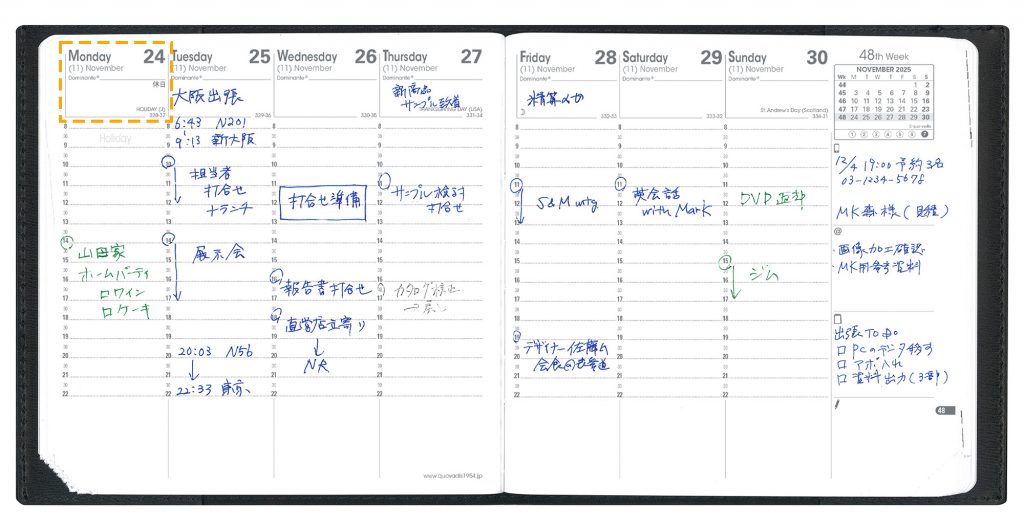 Monday 24
(11) November
Dominante®
休日
HOLIDAY (J)
328-37
Holiday
山田家
ホームパーティ
ロワイン
ロケーキ
Tuesday 25
(11) November
Dominante®
大阪出張
329-36
6:43 N201
9:13 新大阪
担当者
打合せ
+ランチ
展示会
20:03 N56
22:33 東京
Wednesday 26
(11) November
Dominante®
330-35
打合せ準備
報告書打合せ
直営店立寄り
NR
Thursday 27
(11) November
Dominante®
新商品
サンプル到着
THANKSGIVING DAY (USA)
331-34
サンプル検討
打合せ
カタログ修正
Friday 28
(11) November
Dominante®
精算〆切
332-33
S&M mtg
デザイナー佐藤さん
会食@表参道
Saturday 29
(11) November
Dominante®
333-32
英会話
with Mark
Sunday 30
(11) November
Dominante®
St. Andrew's Day (Scotland)
334-31
DVD返却
ジム
48th Week
NOVEMBER 2025
Wk M T W T F S S
44 1 2
45 3 4 5 6 7 8 9
46 10 11 12 13 14 15 16
47 17 18 19 20 21 22 23
48 24 25 26 27 28 29 30
① ② ③ ④ ⑤ ⑥ ⑦
12/4 19:00 予約3名
03-1234-5678
MK森様(日経)
@
・画像加工確認
・MK用参考資料
出張TO DO
□ PCのデータ移す
□ アポ入れ
□ 資料出力(3部)
48
www.quovadis1954.jp